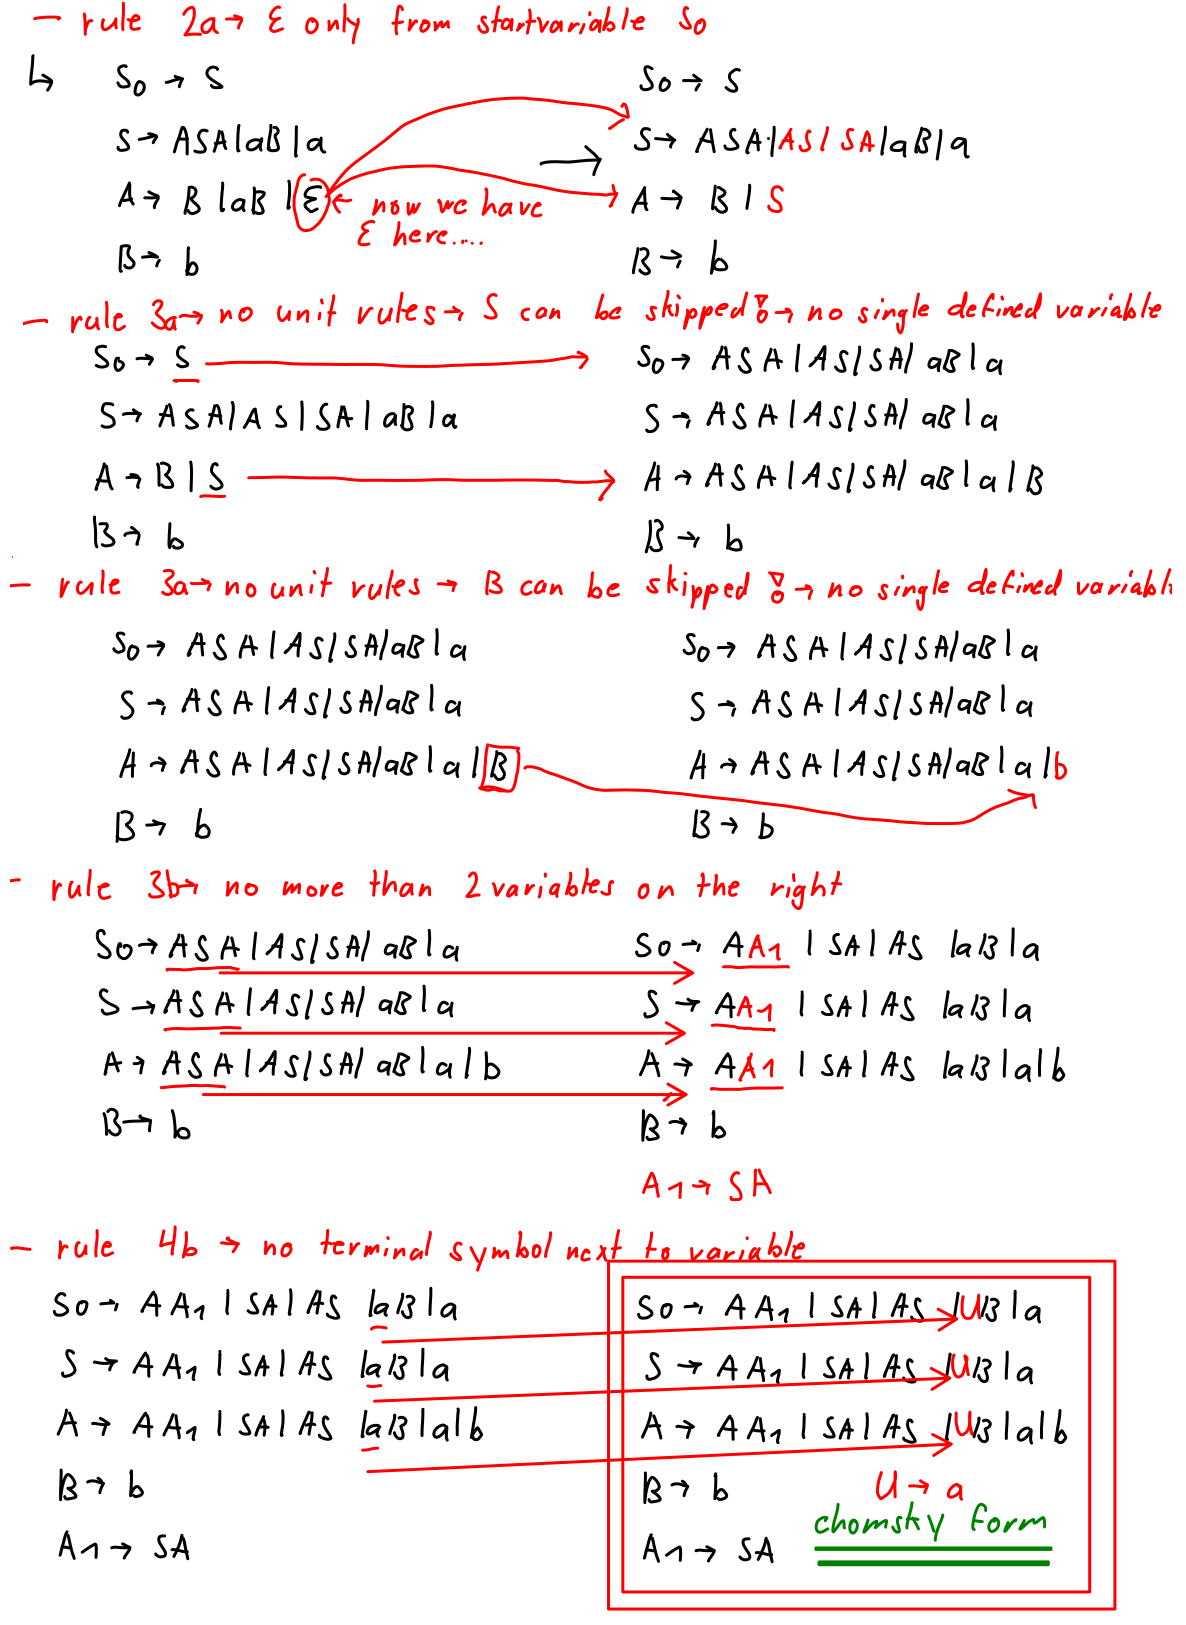 - rule 2a → ε only from startvariable S0
↳ S0 → S S0 → S
S → ASA|aB|a → S → ASA|AS|SA|aB|a
A → B|aB|ε ← now we have A → B|S
ε here....
B → b B → b
- rule 3a → no unit rules → S can be skipped! → no single defined variable
S0 → S S0 → ASA|AS|SA|aB|a
S → ASA|AS|SA|aB|a S → ASA|AS|SA|aB|a
A → B|S A → ASA|AS|SA|aB|a|B
B → b B → b
- rule 3a → no unit rules → B can be skipped! → no single defined variabl
S0 → ASA|AS|SA|aB|a S0 → ASA|AS|SA|aB|a
S → ASA|AS|SA|aB|a S → ASA|AS|SA|aB|a
A → ASA|AS|SA|aB|a|B A → ASA|AS|SA|aB|a|b
B → b B → b
- rule 3b → no more than 2 variables on the right
S0 → ASA|AS|SA|aB|a S0 → AA1|SA|AS|aB|a
S → ASA|AS|SA|aB|a S → AA1|SA|AS|aB|a
A → ASA|AS|SA|aB|a|b A → AA1|SA|AS|aB|a|b
B → b B → b
A1 → SA
- rule 4b → no terminal symbol next to variable
S0 → AA1|SA|AS|aB|a S0 → AA1|SA|AS|UB|a
S → AA1|SA|AS|aB|a S → AA1|SA|AS|UB|a
A → AA1|SA|AS|aB|a|b A → AA1|SA|AS|UB|a|b
B → b B → b U → a
chomsky form
A1 → SA A1 → SA